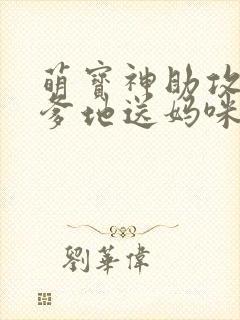 萌寶神助攻
爹地送媽咪
劉華偉